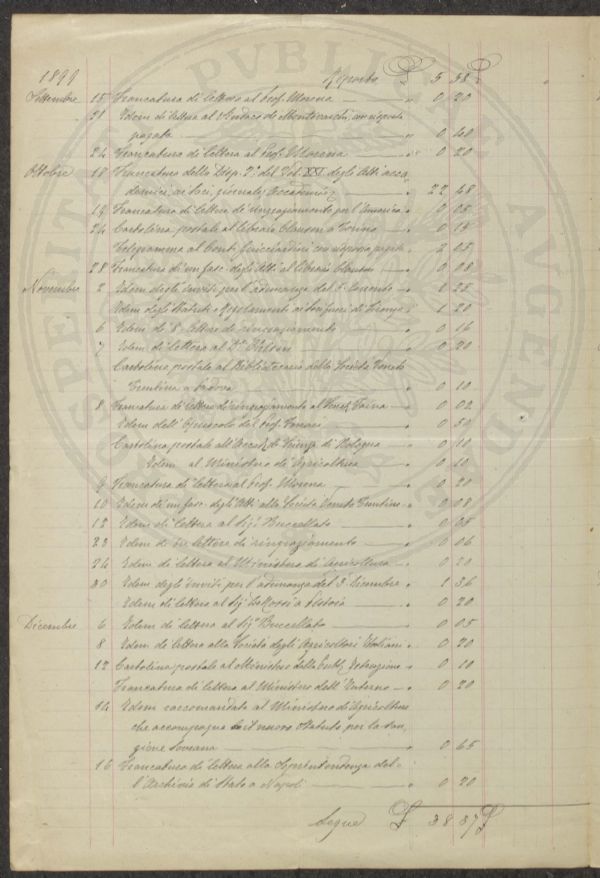 1899 Riporto £ 5 58
Settembre 15 Francatura di lettera al Prof. Morena 0 20
21 Idem di lettera al Sindaco di con risposta
pagata 0 40
24 Francatura di lettera al Prof. Morena 0 20
Ottobre 18 Francatura della Disp. del Vol. XXI degli Atti acca
demici ai Soci, giornali, Accademie, 22 48
19 Francatura di lettera di ringraziamento per l'America 0 05
24 Cartolina postale al libraio Clausen a Torino 0 15
Telegramma al Conte Guicciardini con risposta pagata 2 05
28 Francatura di un fasc. degli Atti al libraio Clausen 0 08
Novembre 2 Idem degli inviti per l'adunanza del 5 Corrente 1 22
Idem degli Statuti e Regolamenti ai di Firenze 1 20
6 Idem di 8 lettere di ringraziamento 0 16
7 Idem di lettera al Dr. 0 20
Cartolina postale al Bibliotecario della Società Veneto
Trentina a Padova 0 10
8 Francatura di lettera di ringraziamento al Faina 0 02
Idem dell' Opuscolo del Prof. 0 50
Cartolina postale all'Accad. di Scienze di Bologna 0 10
Idem al Ministero di Agricoltura 0 10
9 Francatura di lettera al Prof. Morena 0 20
10 Idem di un fasc. degli Atti alla Società Veneto Trentina 0 08
12 Idem di lettera al Sig. Buccellato 0 05
22 Idem di tre lettere di ringraziamento 0 06
24 Idem di lettera al Ministero di Agricoltura 0 20
30 Idem degli inviti per l'adunanza del 3 Dicembre 1 36
Idem di lettera al Sig. a Pistoia 0 20
Dicembre 6 Idem di lettera al Sig. Buccellato 0 05
8 Idem di lettera alla Società degli Agricoltori Italiani 0 20
12 Cartolina postale al Ministero della Pubb. Istruzione 0 10
Francatura di lettera al Ministero dell'Interno 0 20
14 Idem raccomandata al Ministero di Agricoltura
che accompagna il nuovo Statuto per la san
zione Sovrana 0 65
16 Francatura di lettera alla Soprintendenza del=
l'Archivio di Stato a Napoli 0 20
Segue £ 38 37